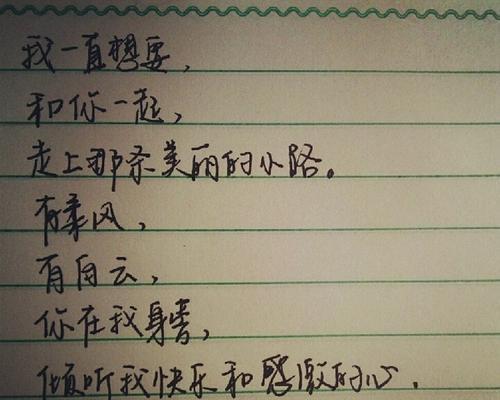 我一直想要,
和你一起,
走上那条美丽的小路。
有柔风,
有白云,
你在我身旁,
倾听我快乐和感激的心.